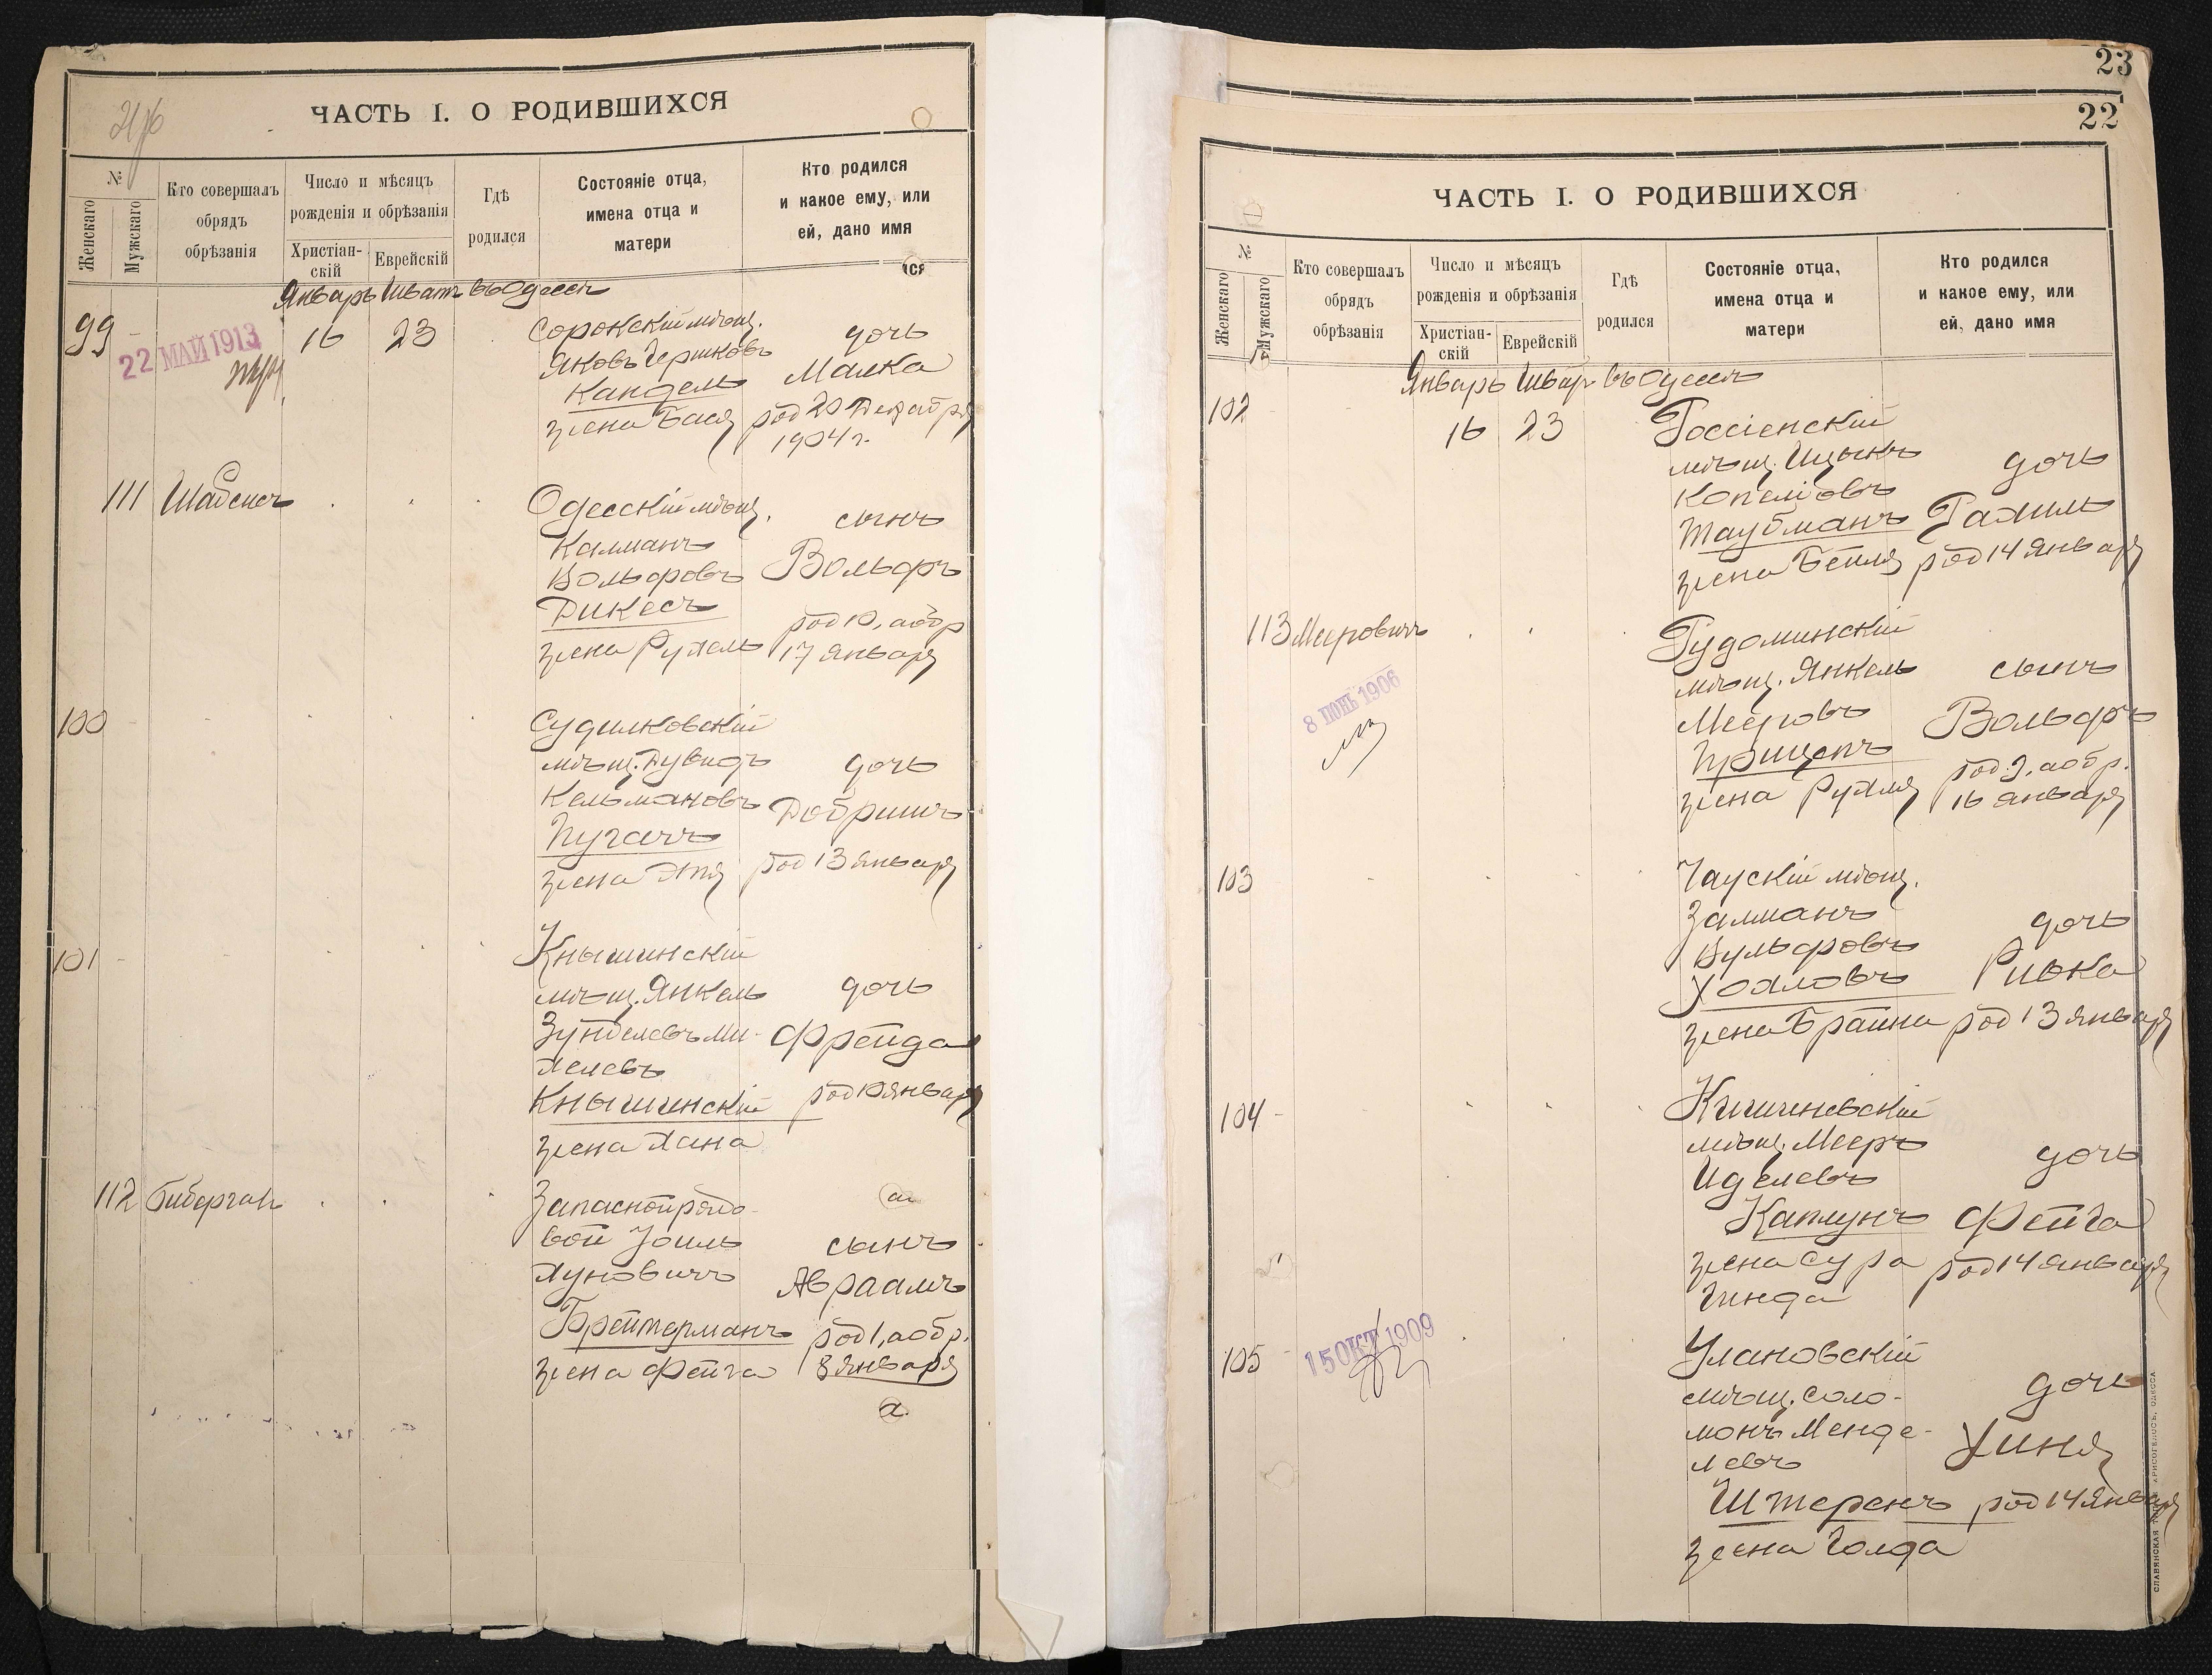 ЧАСТЬ I. О РОДИВШИХСЯ
№
Женскаго
Мужскаго
Кто совершалъ
обрядъ
обрѣзанія
Число и мѣсяцъ
рожденія и обрѣзанія
Христіан-
скій
Еврейскій
Гдѣ
родился
Состояніе отца,
имена отца и
матери
Кто родился
и какое ему, или
ей, дано имя
Январь Шватъ въ Одессѣ
99
22 МАЙ 1913
16 23
Сорокскій мѣщ.
Яковъ Гершковъ
Кандель
жена Бася
дочь
Малка
род 20 Декабря
1904 г.
111 Шабсисъ
Одесскій мѣщ.
Калманъ
Вольфовъ
Дикесъ
жена Рухель
сынъ
Вольфъ
род 10, а обр
17 января
100
Судилковскій
мѣщ. Дувидъ
Кельмановъ
Пугачъ
жена Этя
дочь
Добришъ
род 13 января
101
Кнышинскій
мѣщ. Янкель
Зунделевъ Ми-
хелевъ
Кнышинскій
жена Хана
дочь
Фрейда
род 10 января
112 Биберган
Запасной рядо-
вой Іоиль
Хуновичъ
Брейтерманъ
жена Фейга
сынъ
Авраамъ
род 1, а обр.
8 января
23
22
ЧАСТЬ I. О РОДИВШИХСЯ
№
Женскаго
Мужскаго
Кто совершалъ
обрядъ
обрѣзанія
Число и мѣсяцъ
рожденія и обрѣзанія
Христіан-
скій
Еврейскій
Гдѣ
родился
Состояніе отца,
имена отца и
матери
Кто родился
и какое ему, или
ей, дано имя
Январь Шват въ Одессѣ
102
16 23
Россіенскій
мѣщ. Ицыкъ
Копелiовъ
Таубманъ
жена Бейля
дочь
Рахиль
род 14 января
113 Мееровичъ
8 ІЮНЬ 1906
Гудоминскій
мѣщ. Янкель
Мееровъ
жена Рухля
сынъ
Вольфъ
род 9, а обр.
16 января
103
Чаускій мѣщ.
Залманъ
Вульфовъ
Хохловъ
жена Брайна
дочь
Ривка
род 13 января
104
Кишиневскій
мѣщ. Мееръ
Иделевъ
Каплунъ
жена Сура
Гинда
дочь
Фейга
род 14 января
105
15 ОКТ 1909
Улановскій
мѣщ. Соло-
монъ Менде-
левъ
Штеренъ
жена Голда
дочь
Хиня
род 14 января